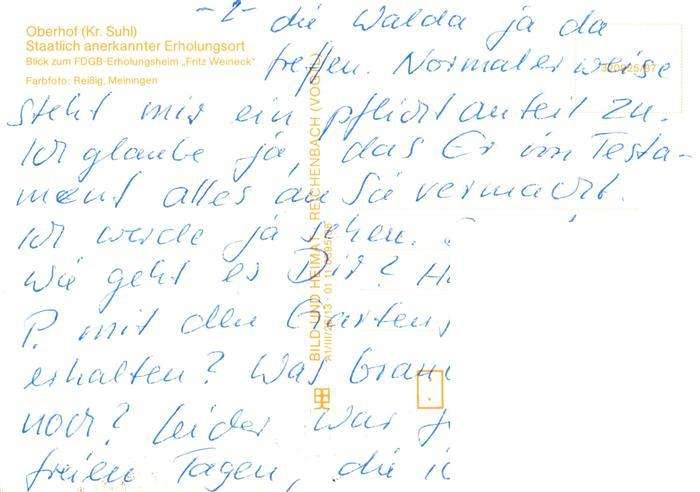 -2-
die Walda ja da
Oberhof (Kr. Suhl)
Staatlich anerkannter Erholungsort
Blick zum FDGB-Erholungsheim „Fritz Weineck"
Farbfoto: Reißig, Meiningen
treffen. Normalerweise
steht mir ein pflichtanteil zu.
Ich glaube ja, das Er im Testa-
ment alles an Sie vermacht.
Ich werde ja sehen.
Wie geht es Dir? H
P. mit den Garten
erhalten? Was brau
noch? Leider war
freien Tagen, die
BILD UND HEIMAT REICHENBACH (VOGTL